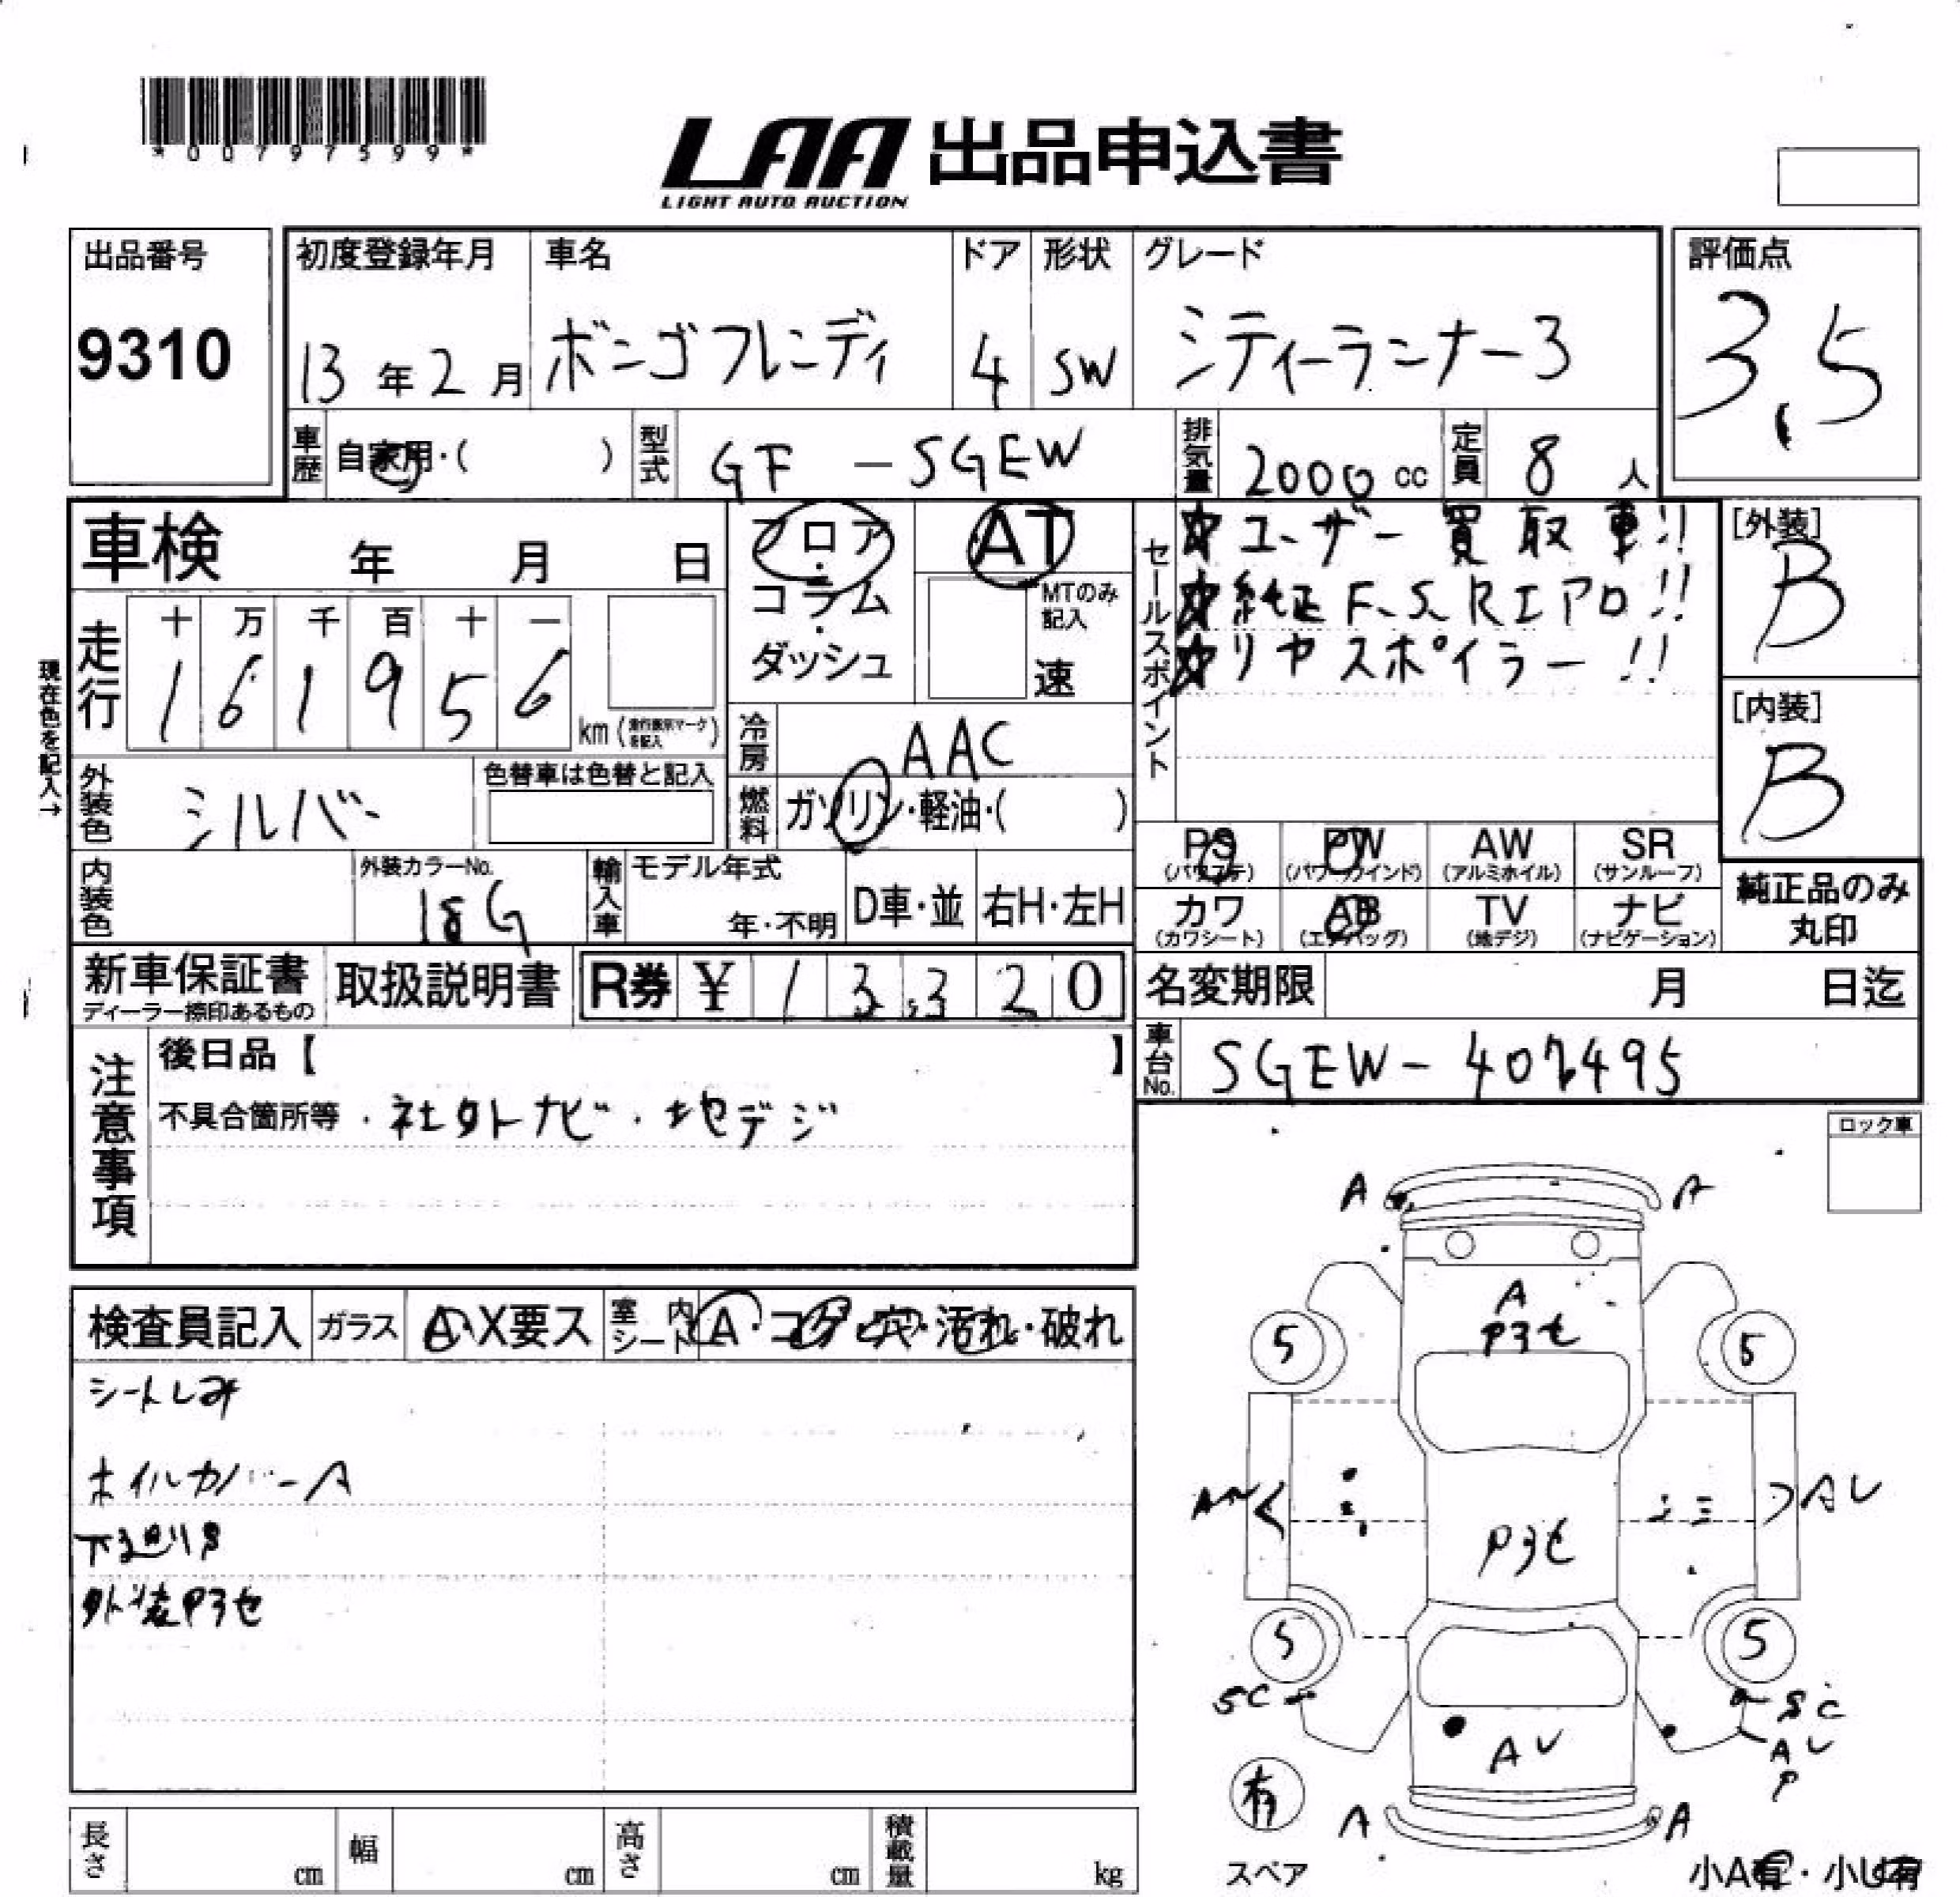 *00797599*
LAA 出品申込書
LIGHT AUTO AUCTION
出品番号 9310
初度登録年月 13年2月
車名 ボンゴフレンディ
ドア 4
形状 SW
グレード シティーランナー3
評価点 3.5
車歴 自家用・( )
型式 GF - SGEW
排気量 2000 cc
定員 8 人
車検 年 月 日
フロア・コラム・ダッシュ
AT
MTのみ記入
速
セールスポイント
☆ユーザー買取車!!
☆純正F.S.Rエアロ!!
☆リヤスポイラー!!
[外装] B
[内装] B
現在色を記入→
走行 十 万 千 百 十 一
1 6 1 9 5 6 km
冷房 AAC
外装色 シルバー
色替車は色替と記入
燃料 ガソリン・軽油・( )
内装色
外装カラーNo. 18G
輸入車 モデル年式 年・不明
D車・並
右H・左H
PS (パワステ)
PW (パワーウインド)
AW (アルミホイル)
SR (サンルーフ)
カワ (カワシート)
AB (エアバッグ)
TV (地デジ)
ナビ (ナビゲーション)
純正品のみ丸印
新車保証書
ディーラー捺印あるもの
取扱説明書
R券 ¥ 1 3 3 2 0
名変期限 月 日迄
車台No. SGEW-407495
注意事項
後日品【 】
不具合箇所等 ・社外ナビ・地デジ
ロック車
検査員記入
ガラス A・X要ス
室内シート A・コゲ・穴・汚れ・破れ
シートしみ
ホイルカバーA
下廻りS
外装Pヨセ
A A
A
Pヨセ
5 5
AU
Pヨセ
5 5
SC SC
AU
AU
P
有
スペア
A A
小A有・小U有
長さ cm
幅 cm
高さ cm
積載量 kg